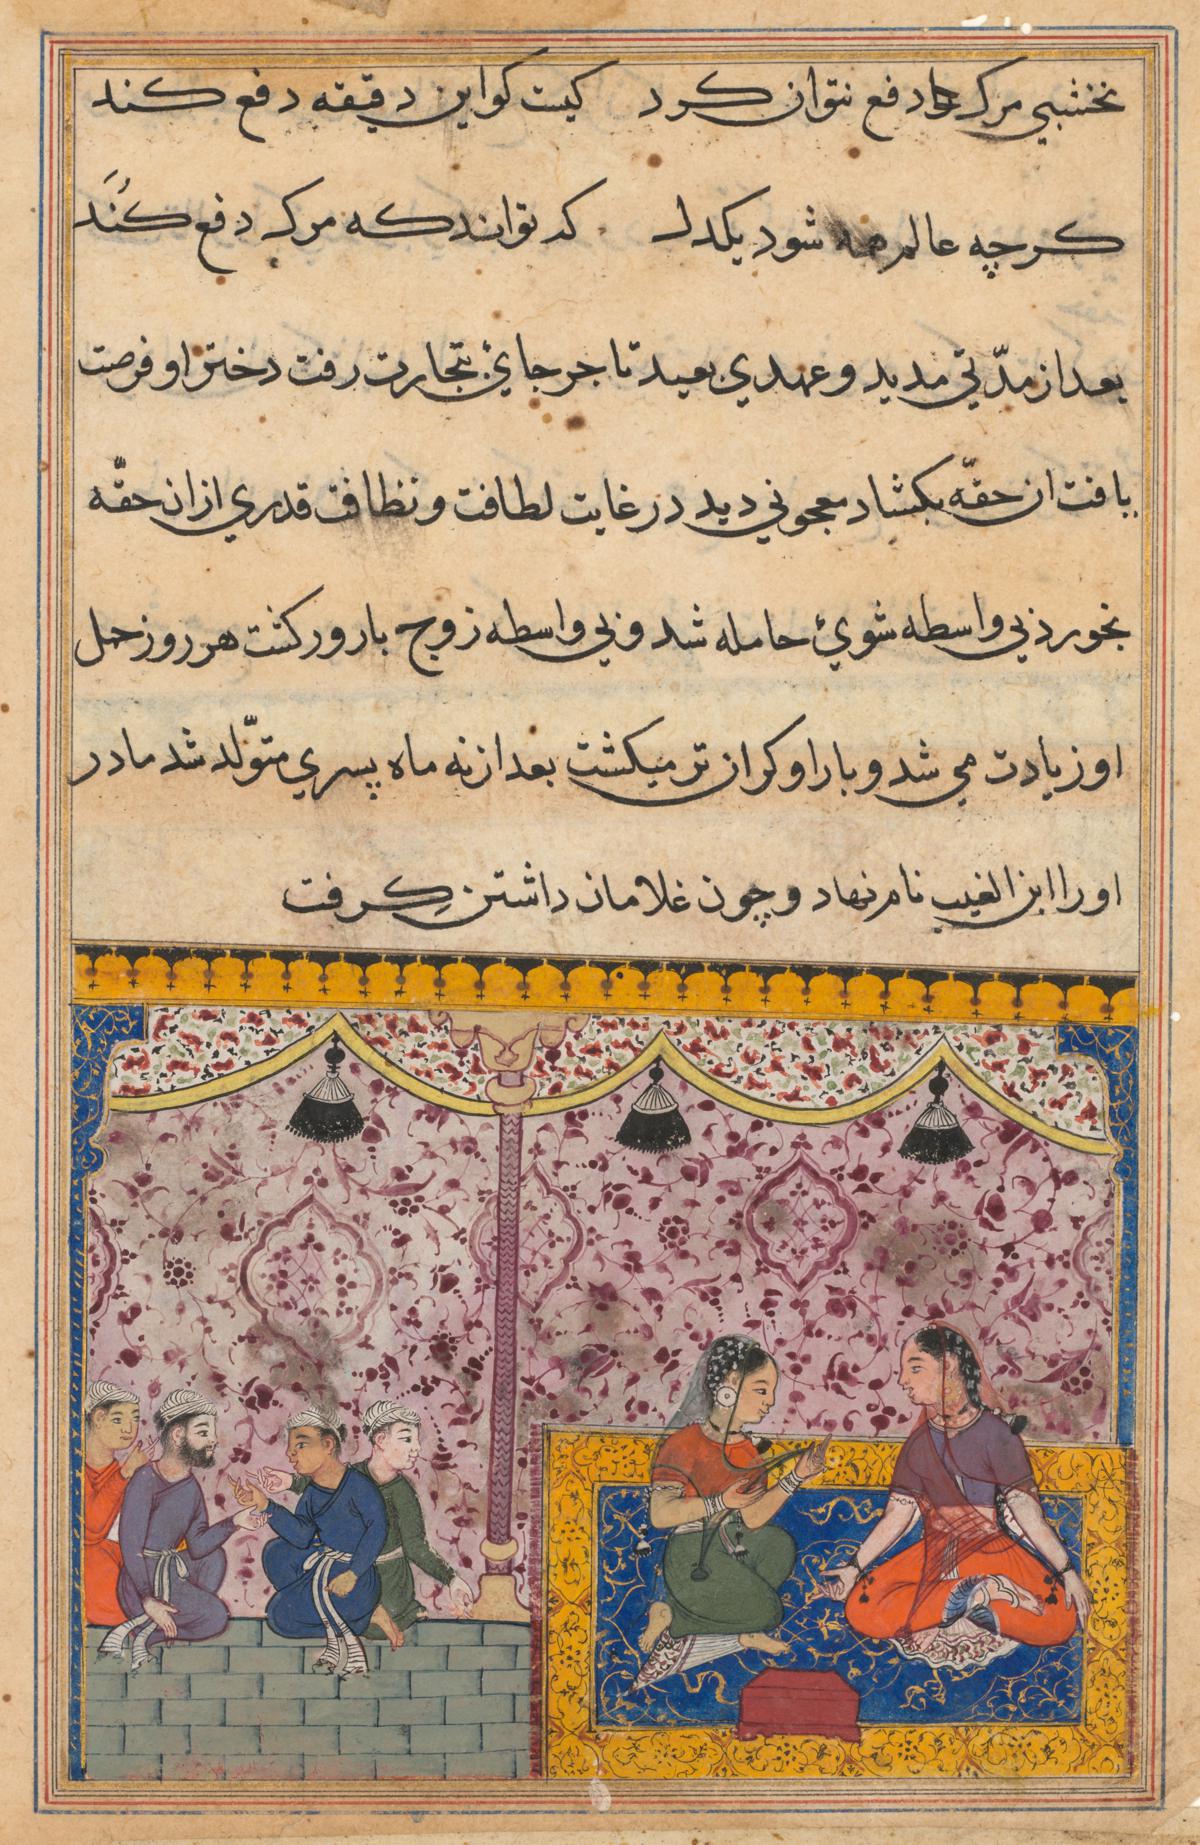 نخشبی مرک را دفع نتوان کرد کیست کو این دقیقه دفع کند
کرچه عالم همه شود یکدل که تواند که مرک دفع کُنَد
بعد از مدّتی مدید و عهدی بعید تاجر جایٔ بتجارت رفت دختر او فرصت
یافت ان حقّه بکشاد معجونی دید در غایت لطافت و نظافت قدری از ان حقّه
بخورد بی واسطه شویٔ حامله شد و بی واسطه زوج بارور کشت هر روز حمل
او زیادت می شد و بار او کران تر میکشت بعد از نه ماه پسری متوّلد شد مادر
او را ابن الغیب نام نهاد و چون غلامان داشتن کِرفت